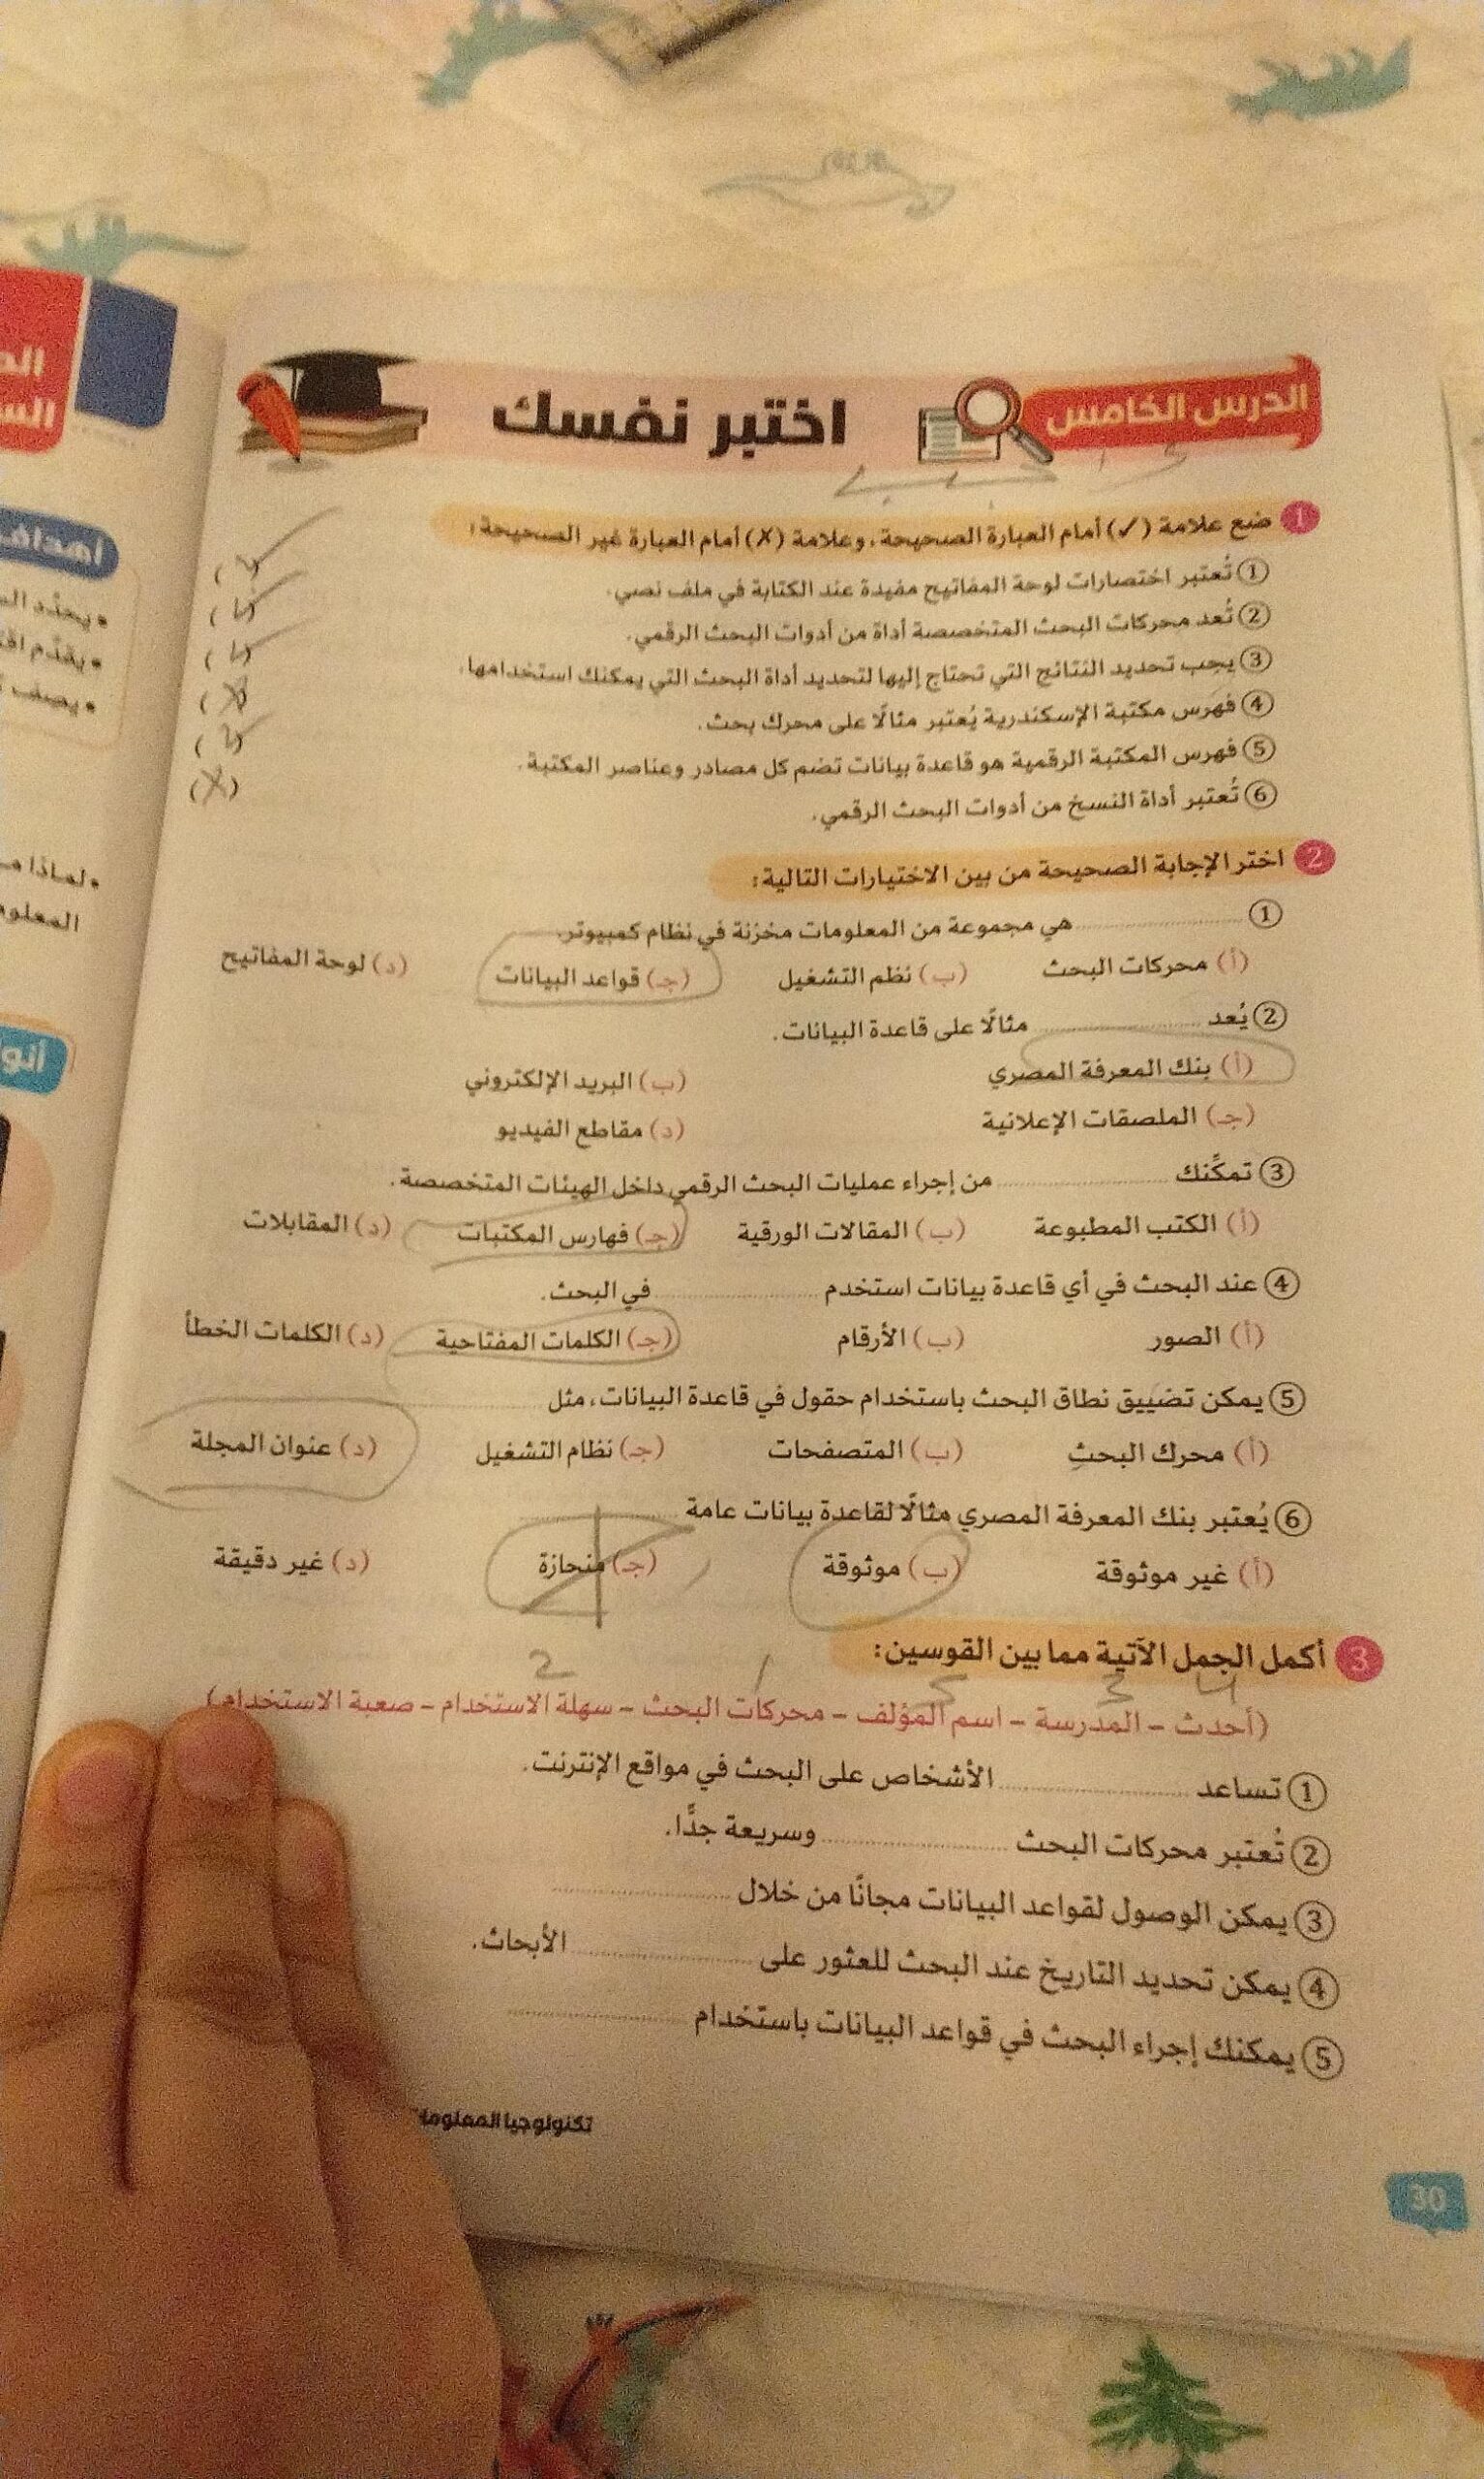 الدرس الخامس
اختبر نفسك
1 ضع علامة (✓) أمام العبارة الصحيحة، وعلامة (✗) أمام العبارة غير الصحيحة:
① تُعتبر اختصارات لوحة المفاتيح مفيدة عند الكتابة في ملف نصي. (✓)
② تُعد محركات البحث المتخصصة أداة من أدوات البحث الرقمي. (✓)
③ يجب تحديد النتائج التي تحتاج إليها لتحديد أداة البحث التي يمكنك استخدامها. (✓)
④ فهرس مكتبة الإسكندرية يُعتبر مثالًا على محرك بحث. (X)
⑤ فهرس المكتبة الرقمية هو قاعدة بيانات تضم كل مصادر وعناصر المكتبة. (✓)
⑥ تُعتبر أداة النسخ من أدوات البحث الرقمي. (X)
2 اختر الإجابة الصحيحة من بين الاختيارات التالية:
① .................... هي مجموعة من المعلومات مخزنة في نظام كمبيوتر.
(أ) محركات البحث (ب) نظم التشغيل (جـ) قواعد البيانات (د) لوحة المفاتيح
② يُعد .................... مثالًا على قاعدة البيانات.
(أ) بنك المعرفة المصري (ب) البريد الإلكتروني
(جـ) الملصقات الإعلانية (د) مقاطع الفيديو
③ تمكِّنك .................... من إجراء عمليات البحث الرقمي داخل الهيئات المتخصصة.
(أ) الكتب المطبوعة (ب) المقالات الورقية (جـ) فهارس المكتبات (د) المقابلات
④ عند البحث في أي قاعدة بيانات استخدم .................... في البحث.
(أ) الصور (ب) الأرقام (جـ) الكلمات المفتاحية (د) الكلمات الخطأ
⑤ يمكن تضييق نطاق البحث باستخدام حقول في قاعدة البيانات، مثل ....................
(أ) محرك البحث (ب) المتصفحات (جـ) نظام التشغيل (د) عنوان المجلة
⑥ يُعتبر بنك المعرفة المصري مثالًا لقاعدة بيانات عامة ....................
(أ) غير موثوقة (ب) موثوقة (جـ) منحازة (د) غير دقيقة
3 أكمل الجمل الآتية مما بين القوسين:
4 3 5 1 2
(أحدث – المدرسة – اسم المؤلف – محركات البحث – سهلة الاستخدام – صعبة الاستخدام)
① تساعد .................... الأشخاص على البحث في مواقع الإنترنت.
② تُعتبر محركات البحث .................... وسريعة جدًّا.
③ يمكن الوصول لقواعد البيانات مجانًا من خلال ....................
④ يمكن تحديد التاريخ عند البحث للعثور على .................... الأبحاث.
⑤ يمكنك إجراء البحث في قواعد البيانات باستخدام ....................
تكنولوجيا
30